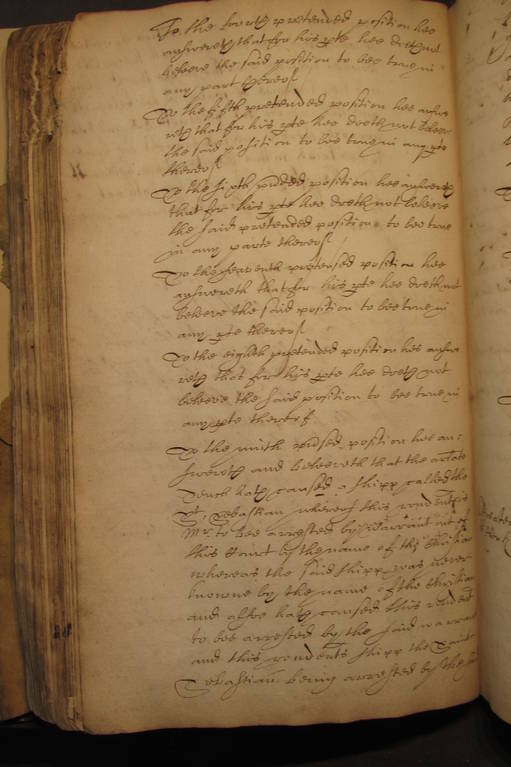 To the fourth pretended position hee
answereth that for his pte hee doth not
beleeve the said position to bee true in
any part thereof
To the fifth pretended position hee answe
reth that for his pte hee doeth not beleeve
the said position to bee true in any pte
thereof
To the sixth position hee answereth
that for his pte hee doeth not beleeve
the said pretended position to bee true
in any parte thereof
To the seaventh pretensed position hee
answereth that for his pte hee doeth not
beleeve the said position to bee true in
any pte thereof
To the eighth pretended position hee answe
reth that for his pte hee doeth not
beleeve the said position to bee true in
any pte thereof
To the ninth position hee an:
swereth and beleeveth that the
hath caused a shipp called the
St Sebastian whereof this rondent is
Mr to bee arrested by warrant out of
this Court by the name of the Christian
whereas the said shipp was never
knowne by the name of the Christian
and alsoe hath caused this rondent
to bee arrested by the said warrant
and this rondents shipp the Saint
Sebastian being arrested by the said